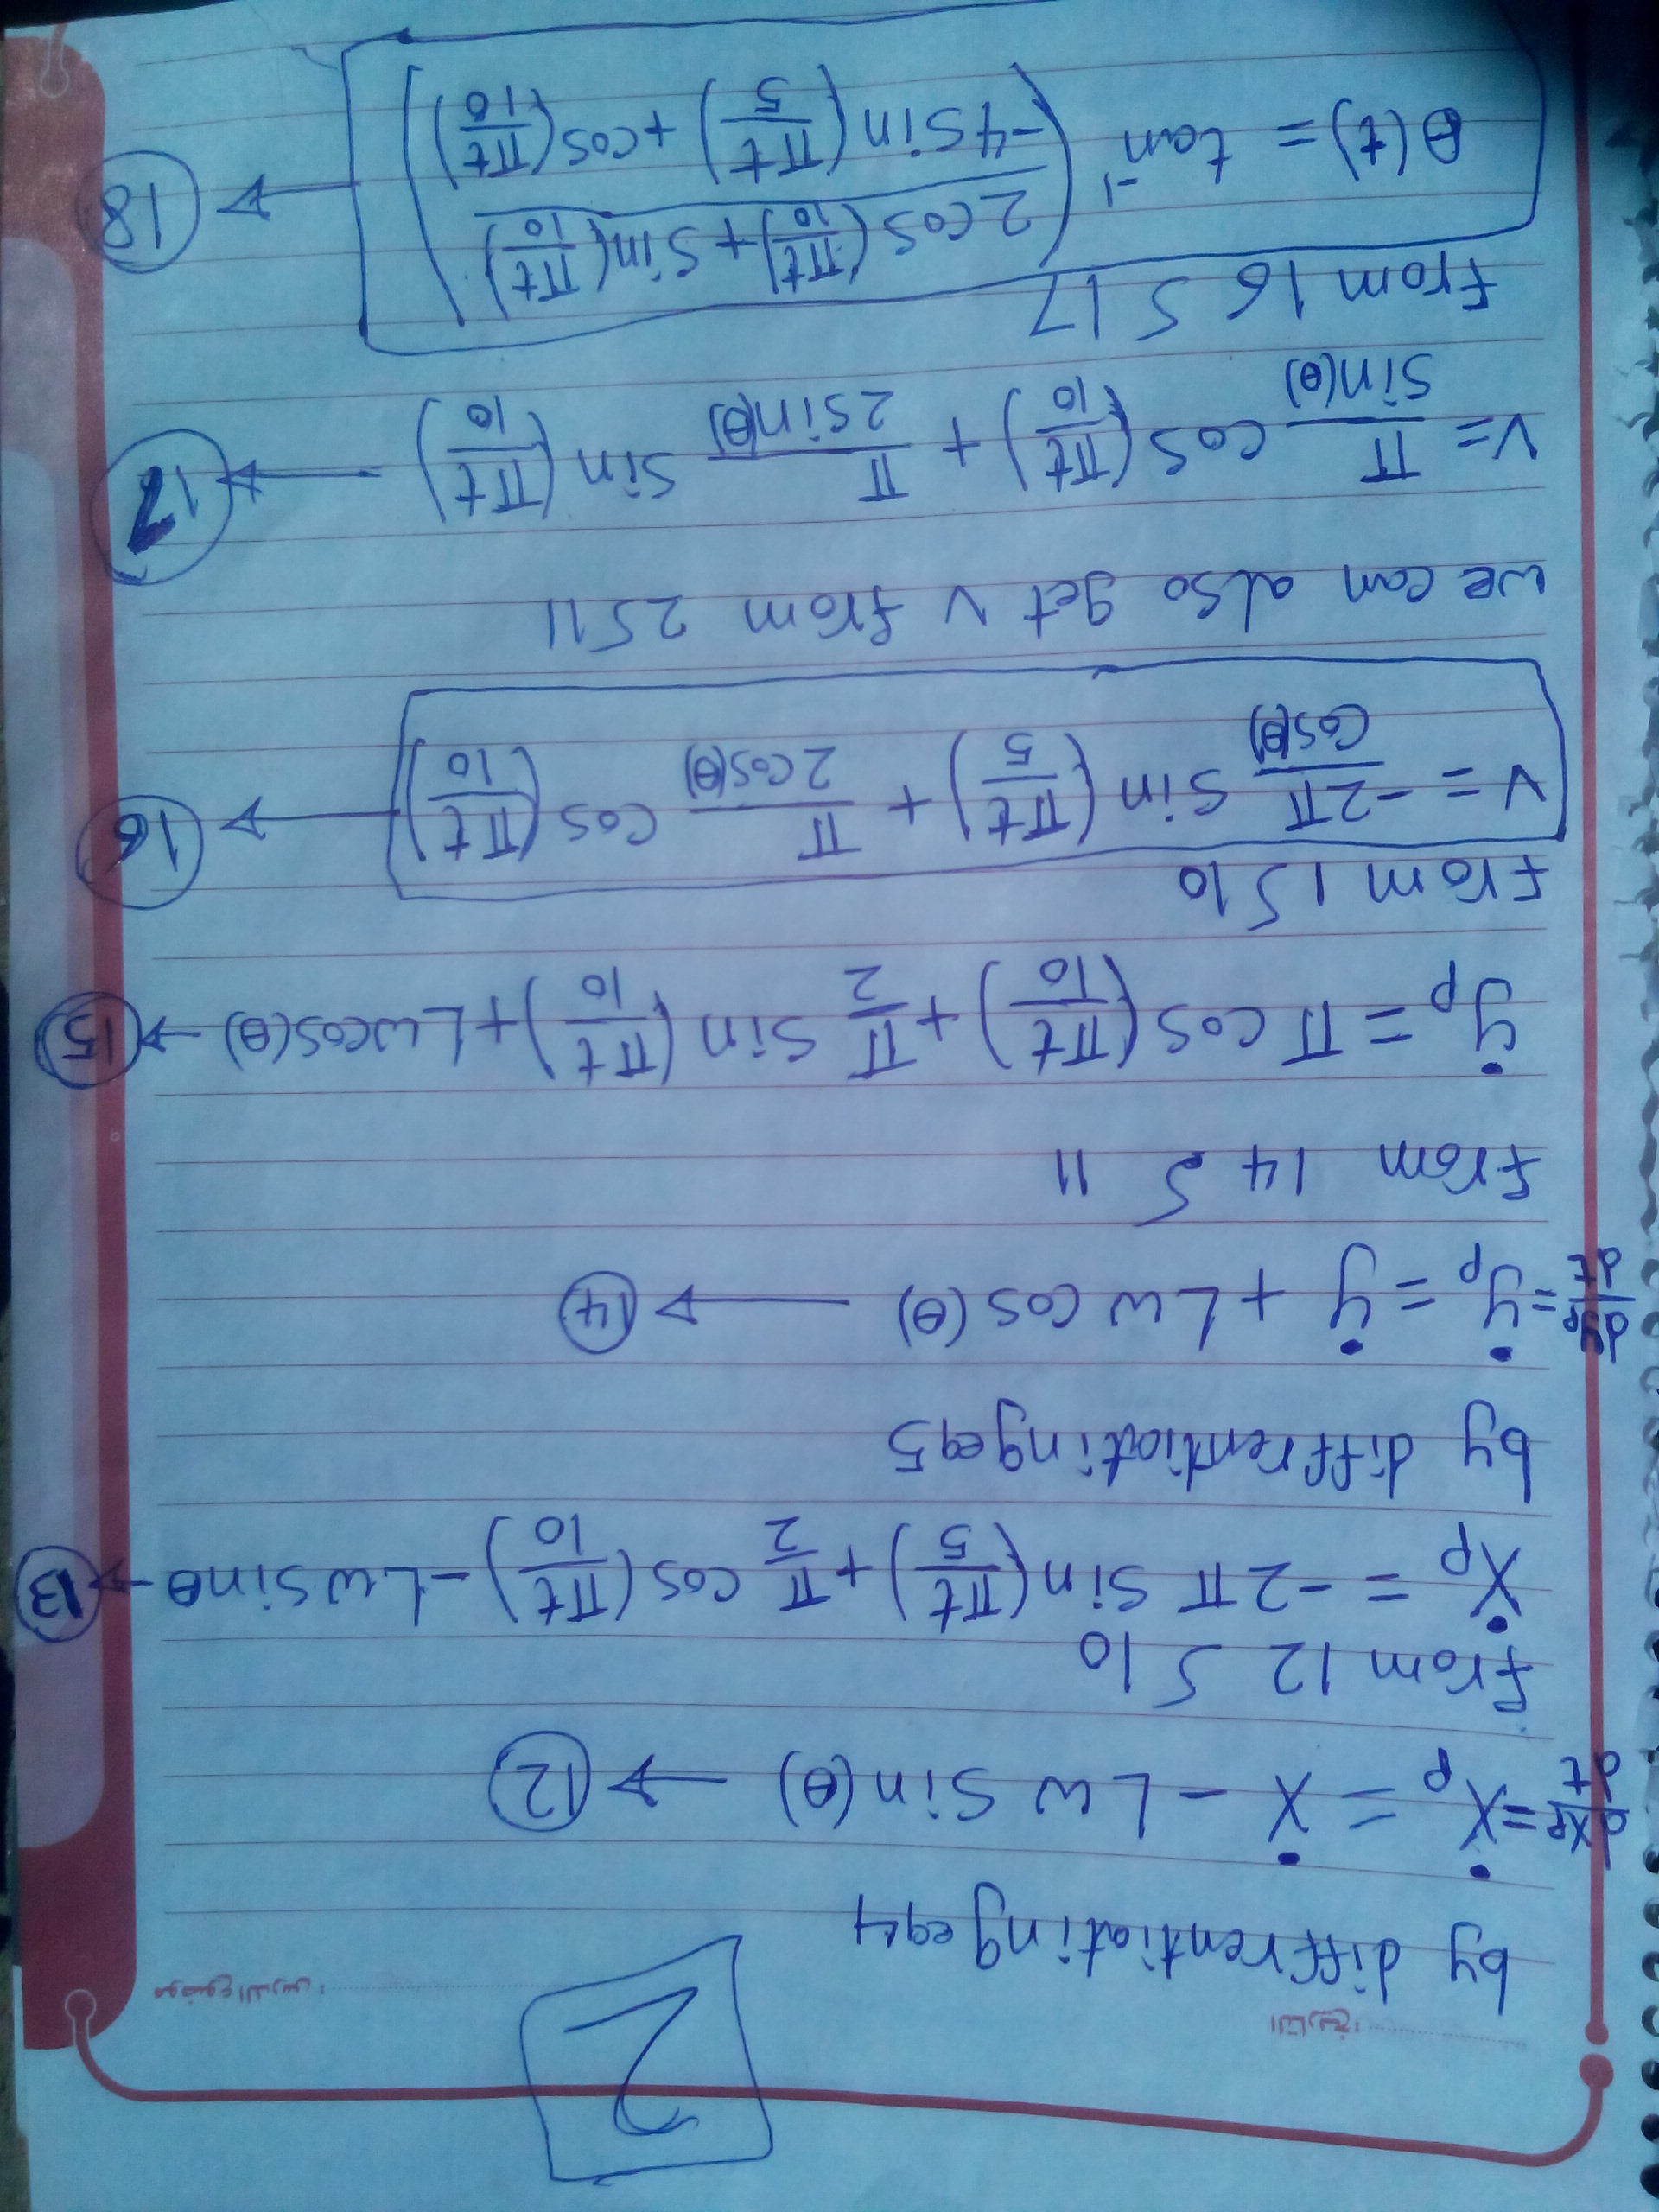 2
التاريخ:
موضوع الدرس:
by diffrentiating eq4
dxp/dt = ẋp = ẋ - Lw sin(θ) → 12
from 12 5 10
ẋp = -2π sin(πt/5) + π/2 cos(πt/10) - Lw sinθ → 13
by diffrentiating eq5
dyp/dt = ẏp = ẏ + Lw cos(θ) → 14
from 14 5 11
ẏp = π cos(πt/10) + π/2 sin(πt/10) + Lw cos(θ) → 15
from 1 5 10
v = -2π/cos(θ) sin(πt/5) + π/2cos(θ) cos(πt/10) → 16
we can also get v from 2 5 11
v = π/sin(θ) cos(πt/10) + π/2sin(θ) sin(πt/10) → 17
From 16 5 17
θ(t) = tan⁻¹((2cos(πt/10) + sin(πt/10))/(-4sin(πt/5) + cos(πt/10))) → 18